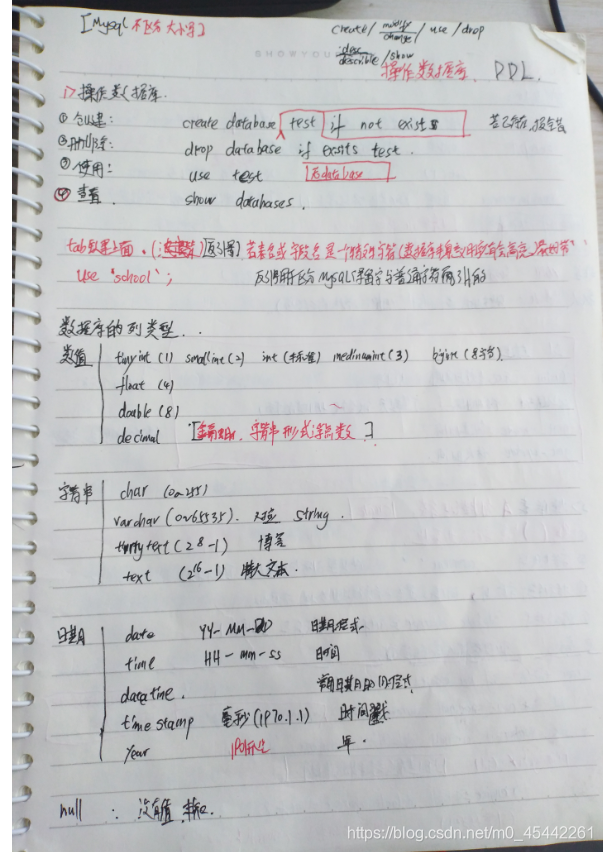 [Mysql 不区分大小写]
create / modify / change / use / drop
desc
describle / show
SHOWYOU
操作数据库 DDL.
1> 操作数据库.
① 创建: create database test if not exists 若已存在,报警告
② 删除: drop database if exsits test.
③ 使用: use test 切database
④ 查看. show databases.
tab 键上面. 反引号 若表名或字段名是一个特殊字符
use `school`;
反引号用于区分MySQL保留字与普通字符而引入的
数据库的列类型..
数值 tinyint (1) smallint (2) int (标准) mediumint (3) bigint (8字节).
float (4)
double (8)
decimal [ 字符串形式浮点数 ]
字符串 char (0~255)
varchar (0~65535). 对应 string.
tinytext (2 8-1) 博客
text (2^16-1) 大文本.
日期 date YY-MM-DD 日期格式
time HH-mm-ss 时间
datetime.
timestamp 毫秒 (1970.1.1) 时间戳
year 年.
null : 没有值
https://blog.csdn.net/m0_45442261